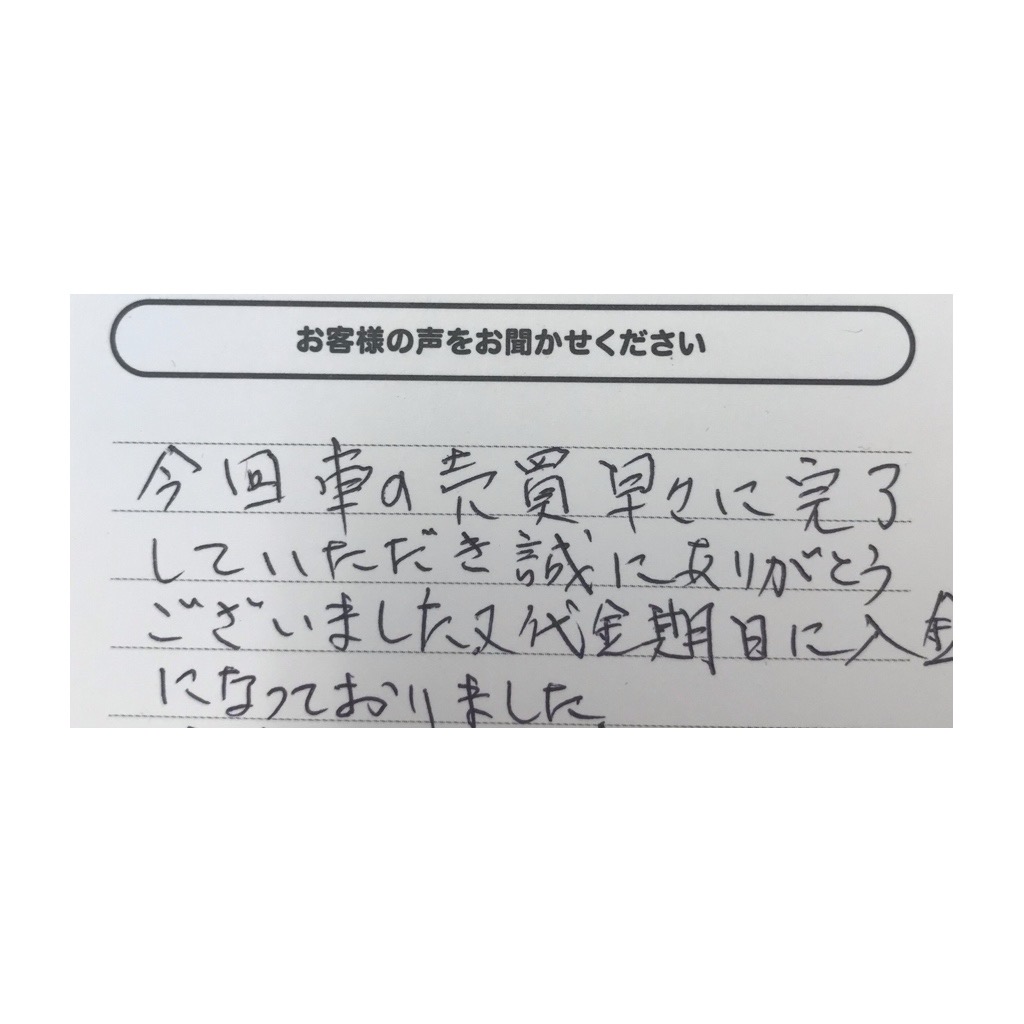 お客様の声をお聞かせください
今回車の売買早々に完了
していただき誠にありがとう
ございました、又代金期日に入金
になっておりました、